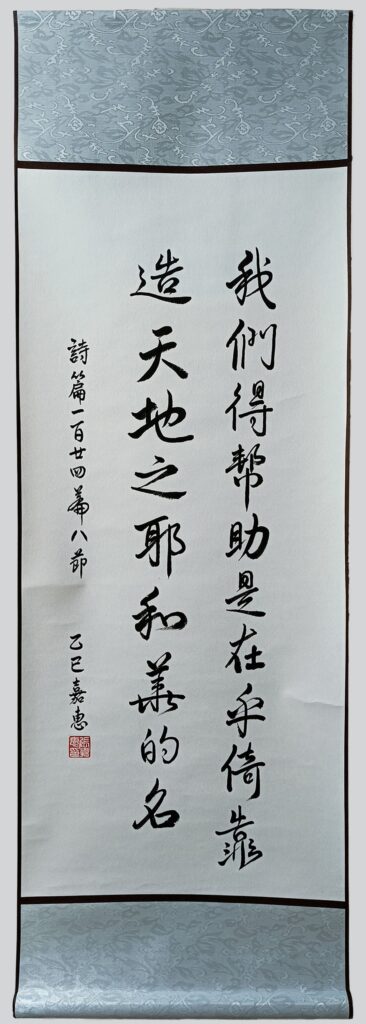 我們得幫助是在乎倚靠
造天地之耶和華的名
詩篇一百廿四篇八節
乙巳嘉惠